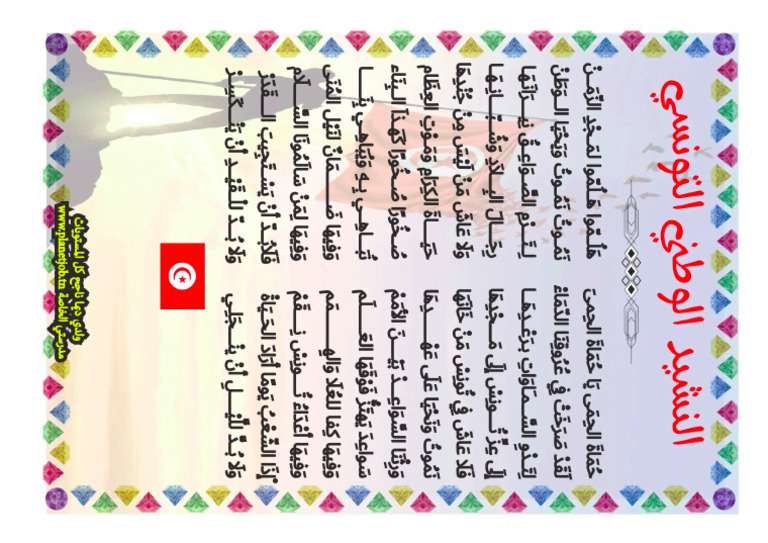 النشيد الوطني التونسي
حُمَاةَ الحِمَى يَا حُمَاةَ الحِمَى هَلُمُّوا هَلُمُّوا لِمَجْدِ الزَّمَنْ
لَقَدْ صَرَخَتْ فِي عُرُوقِنَا الدِّمَاءُ نَمُوتُ نَمُوتُ وَيَحْيَا الوَطَنْ
لِتَدْوِ السَّمَاوَاتِ بِرَعْدِهَا لِتَرْمِ الصَّوَاعِقُ نِيرَانَهَا
إِلَى عِزِّ تُونِسَ إِلَى مَجْدِهَا رِجَالَ البِلَادِ وَشُبَّانَهَا
فَلَا عَاشَ فِي تُونِسَ مَنْ خَانَهَا وَلَا عَاشَ مَنْ لَيْسَ مِنْ جُنْدِهَا
نَمُوتُ وَنَحْيَا عَلَى عَهْدِهَا حَيَاةَ الكِرَامِ وَمَوْتَ العِظَامِ
وَرِثْنَا السَّوَاعِدَ بَيْنَ الأُمَمْ صُخُورًا صُخُورًا كَهَذَا البِنَاءِ
سَوَاعِدَ يَهْتَزُّ فَوْقَهَا العَلَمْ نُبَاهِي بِهِ وَيُبَاهِي بِنَا
وَفِيهَا كِفَا لِلْعُلَا وَالهِمَمْ وَفِيهَا ضَمَانٌ لِنَيْلِ المُنَى
وَفِيهَا لِأَعْدَاءِ تُونِسَ نِقَمْ وَفِيهَا لِمَنْ سَالَمُونَا السَّلَامْ
إِذَا الشَّعْبُ يَوْمًا أَرَادَ الحَيَاةَ فَلَابُدَّ أَنْ يَسْتَجِيبَ القَدَرْ
وَلَا بُدَّ لِلَّيْلِ أَنْ يَنْجَلِي وَلَا بُدَّ لِلْقَيْدِ أَنْ يَنْكَسِرْ
ولدي ديما ناجح كل المستويات
مدرستي الخاصة www.planetjob.tn